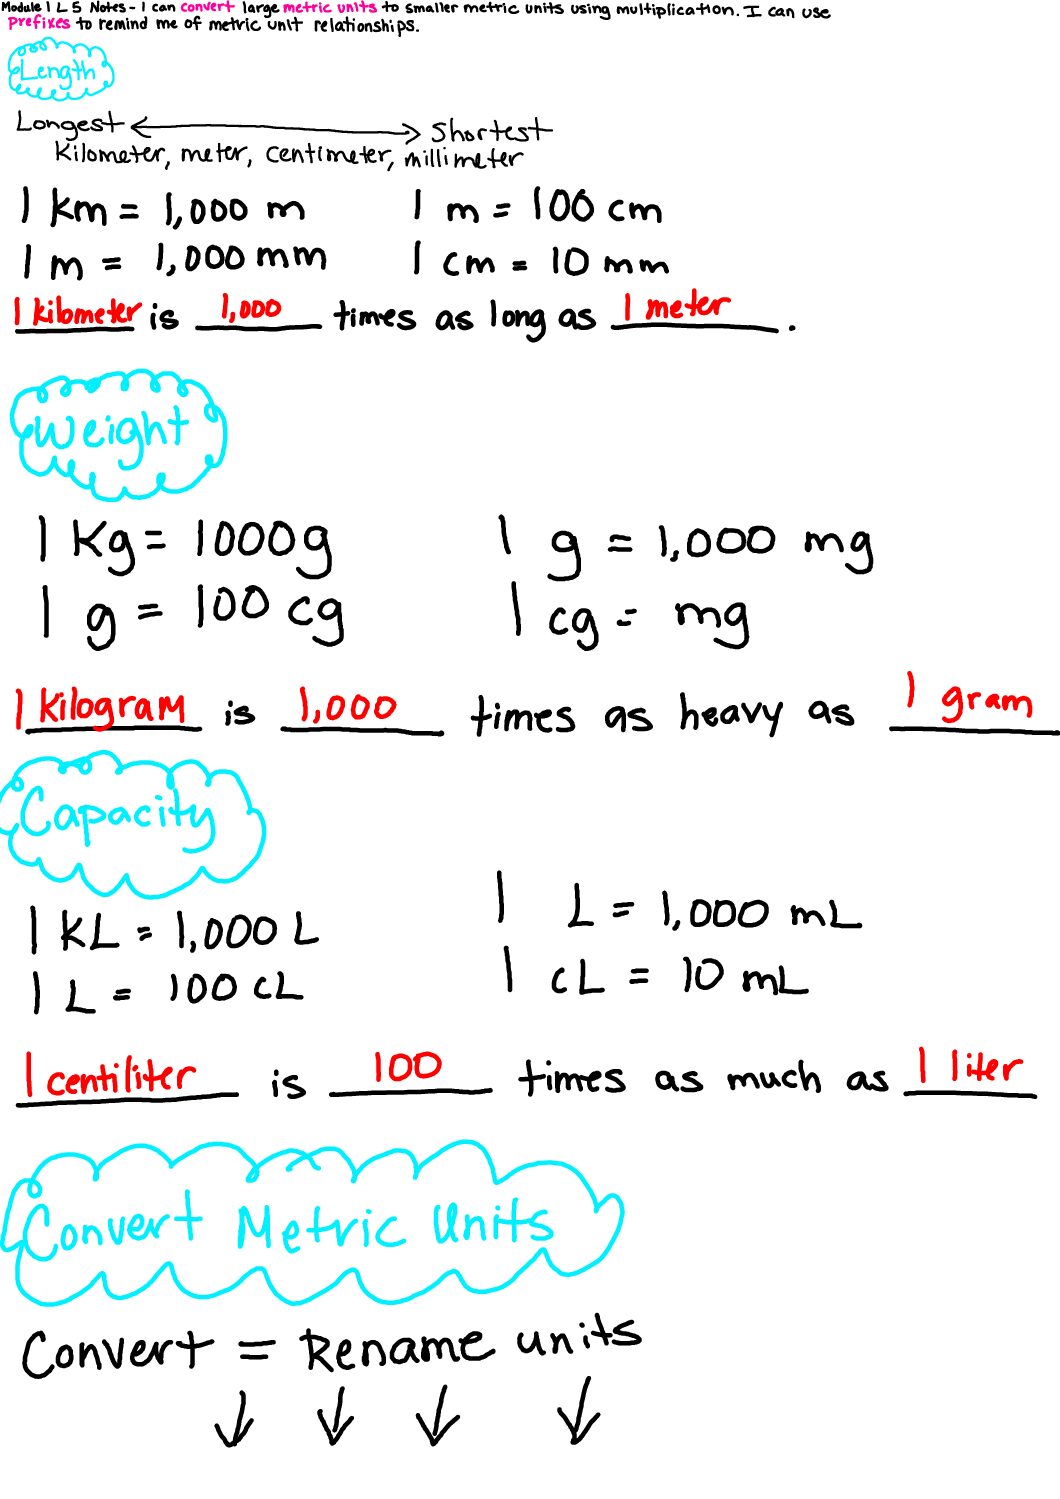 Module 1 L 5 Notes - I can convert large metric units to smaller metric units using multiplication. I can use
prefixes to remind me of metric unit relationships.
Length
Longest ←→ shortest
Kilometer, meter, centimeter, millimeter
1 km = 1,000 m 1 m = 100 cm
1 m = 1,000 mm 1 cm = 10 mm
1 kilometer is 1,000 times as long as 1 meter.
Weight
1 Kg = 1000g 1 g = 1,000 mg
1 g = 100 cg 1 cg = mg
1 kilogram is 1,000 times as heavy as 1 gram
Capacity
1 KL = 1,000 L 1 L = 1,000 mL
1 L = 100 cL 1 cL = 10 mL
1 centiliter is 100 times as much as 1 liter
Convert Metric Units
Convert = Rename units
↓ ↓ ↓ ↓